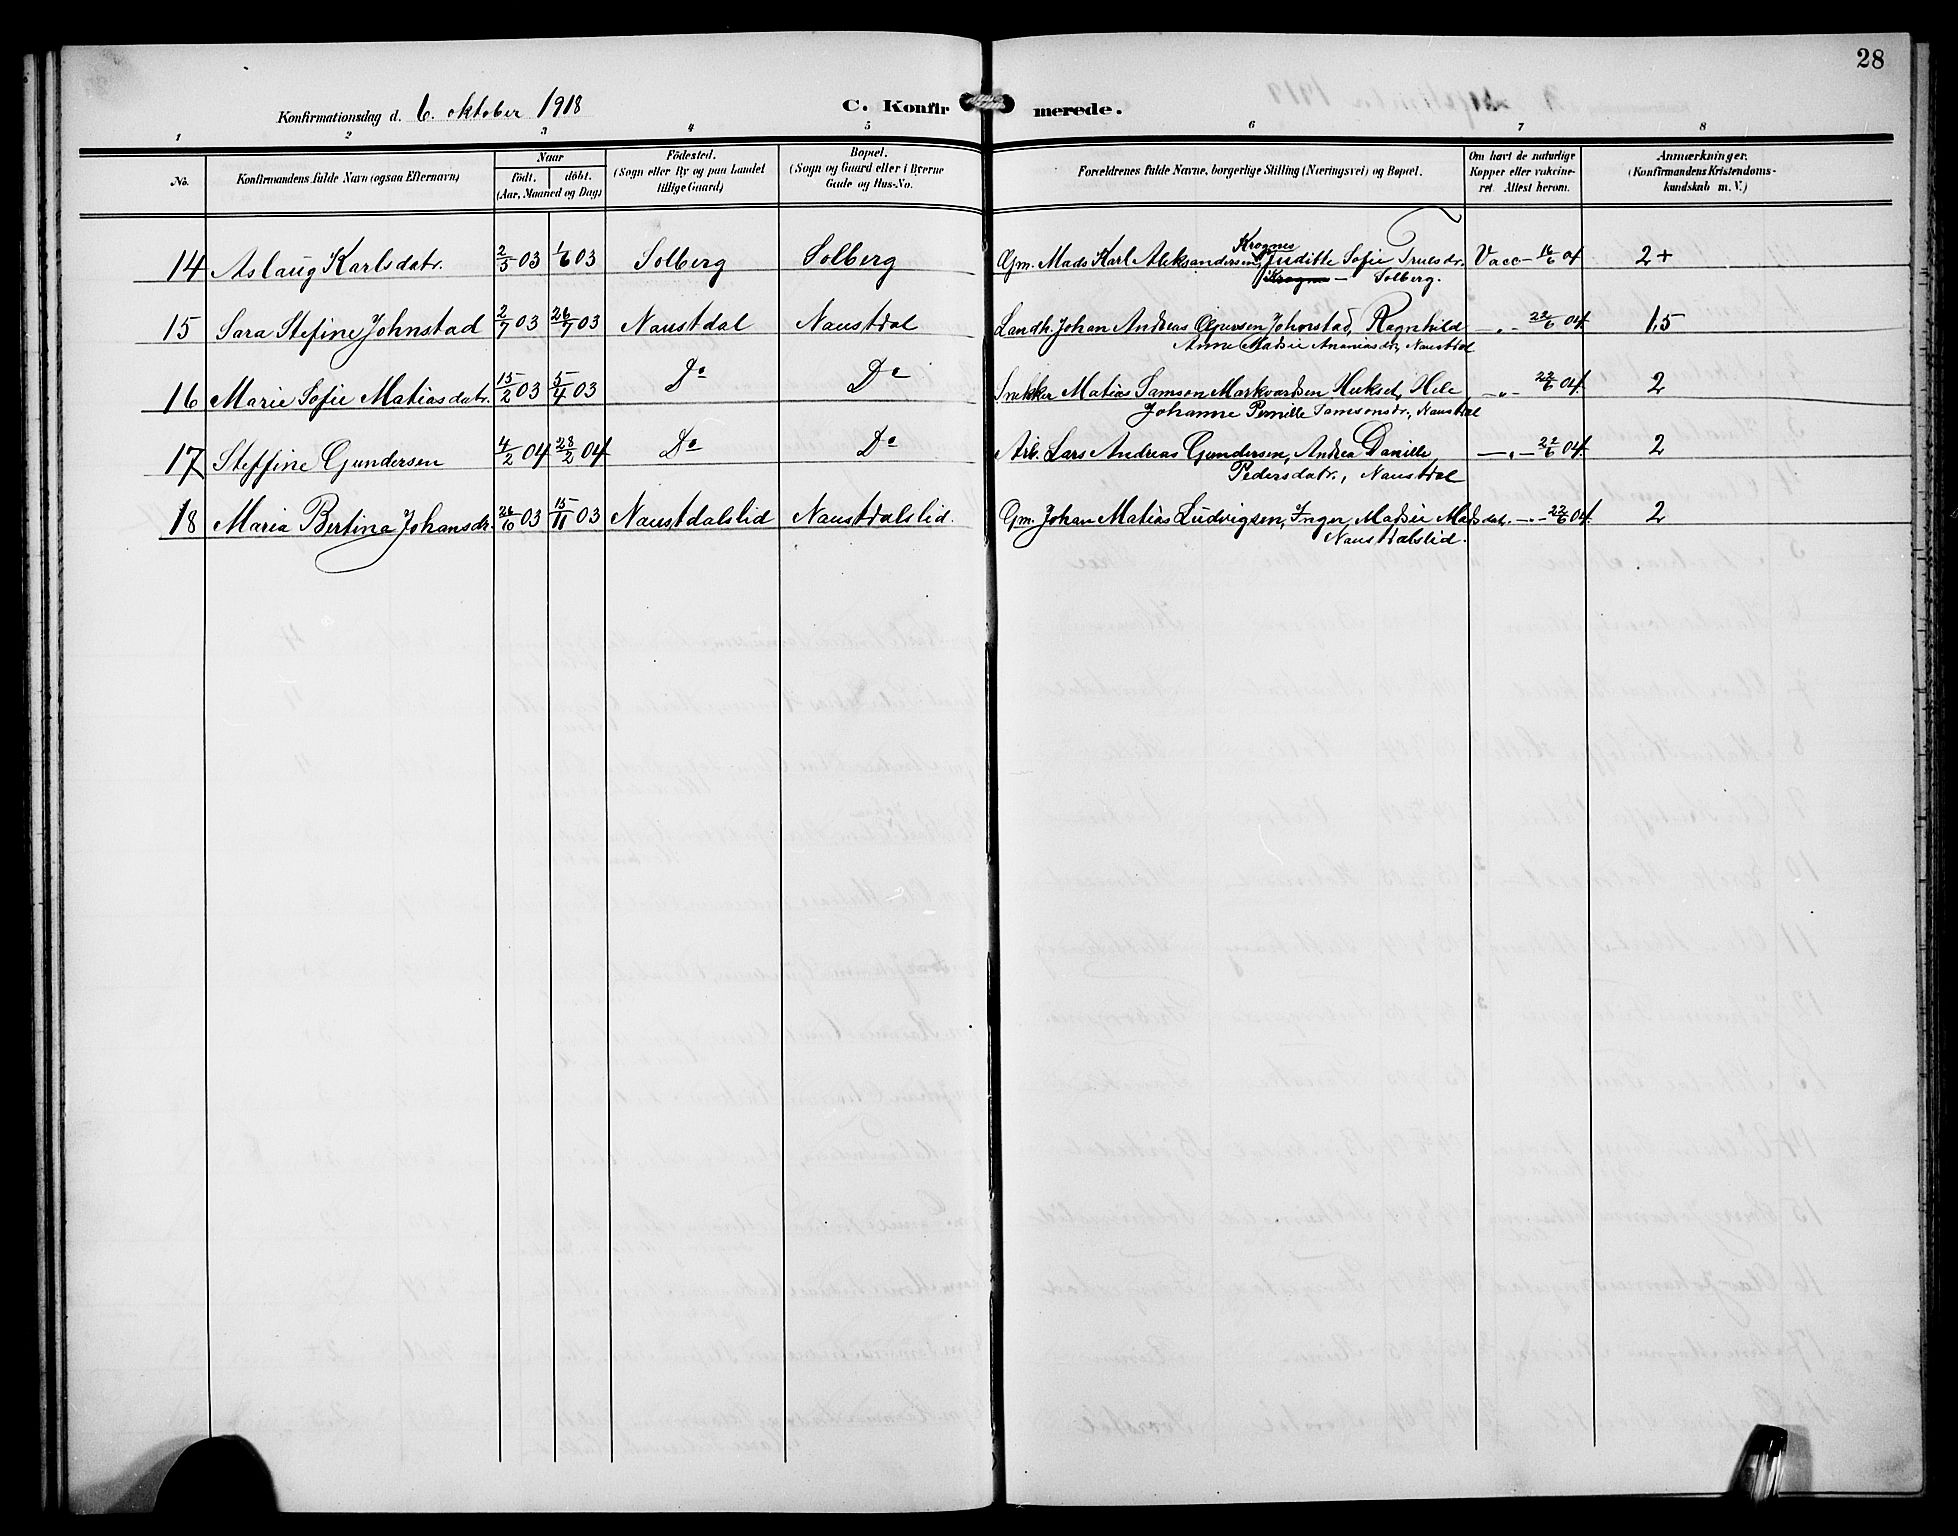 28
Konfirmationsdag d. 6. oktober 1918
C. Konfirmerede.
1 2 3 4 5 6 7 8
No.
Konfirmandens fulde Navn (ogsaa Efternavn)
Naar
födt. döbt.
(Aar, Maaned og Dag)
Födested.
(Sogn eller By og paa Landet
tillige Gaard)
Bopæl.
(Sogn og Gaard eller i Byerne
Gade og Hus-No.
Forældrenes fulde Navne, borgerlige Stilling (Næringsvei) og Bopæl.
Om havt de naturlige
Kopper eller vakcine-
ret. Attest herom.
Anmærkninger.
(Konfirmandens Kristendoms-
kundskab m. V.)
14 Aslaug Karlsdatr. 2/5 03 1/6 03 Solberg Solberg Gm. Mads Karl Aleksandersen Krognes, Juditte Sofie Trulsdr. Vacc - 16/6 04 2+
Solberg.
15 Sara Stefine Johnstad 2/7 03 26/7 03 Naustdal Naustdal Landh. Johan Andreas Johnstad, Ragnhild -„- 22/6 04 1,5
Anne Madsie Ananiasdr, Naustdal
16 Marie Sofie Matiasdatr. 15/2 03 5/4 03 Do Do Snekker Matias Samson Markvardsen Hukset, Hele -„- 22/6 04 2
Johanne Pernille Samsonsdr., Naustdal
17 Steffine Gundersen 4/2 04 28/2 04 Do Do Arb. Lars Andreas Gundersen, Andrea Danille -„- 22/6 04 2
Pedersdatr., Naustdal
18 Maria Bertina Johansdr. 26/10 03 15/11 03 Naustdalslid Naustdalslid. Gm. Johan Matias Ludvigsen, Inger Madsie Madsdat. -„- 22/6 04 2
Naustdalslid.